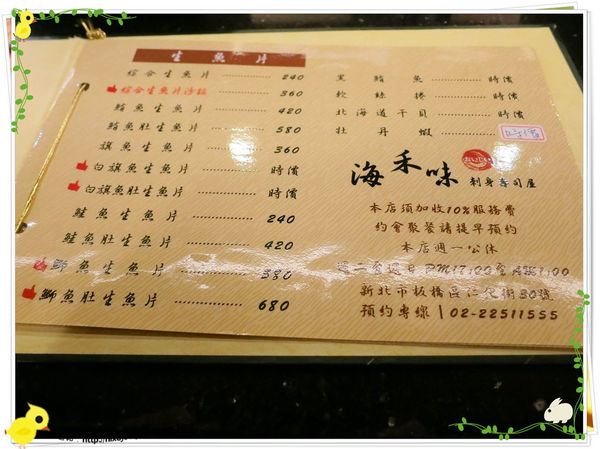 生魚片
綜合生魚片 240
綜合生魚片沙拉 360
鮪魚生魚片 420
鮪魚肚生魚片 580
旗魚生魚片 360
白旗魚生魚片 時價
白旗魚肚生魚片 時價
鮭魚生魚片 240
鮭魚肚生魚片 420
鰤魚生魚片 380
鰤魚肚生魚片 680
黑鮪魚 時價
軟絲捲 時價
北海道干貝 時價
牡丹蝦
海禾味
刺身壽司屋
本店須加收10%服務費
約會聚餐請提早預約
本店週一公休
週二至週日 PM17:00至AM1:00
新北市板橋區仁化街30號
預約專線|02-22511555